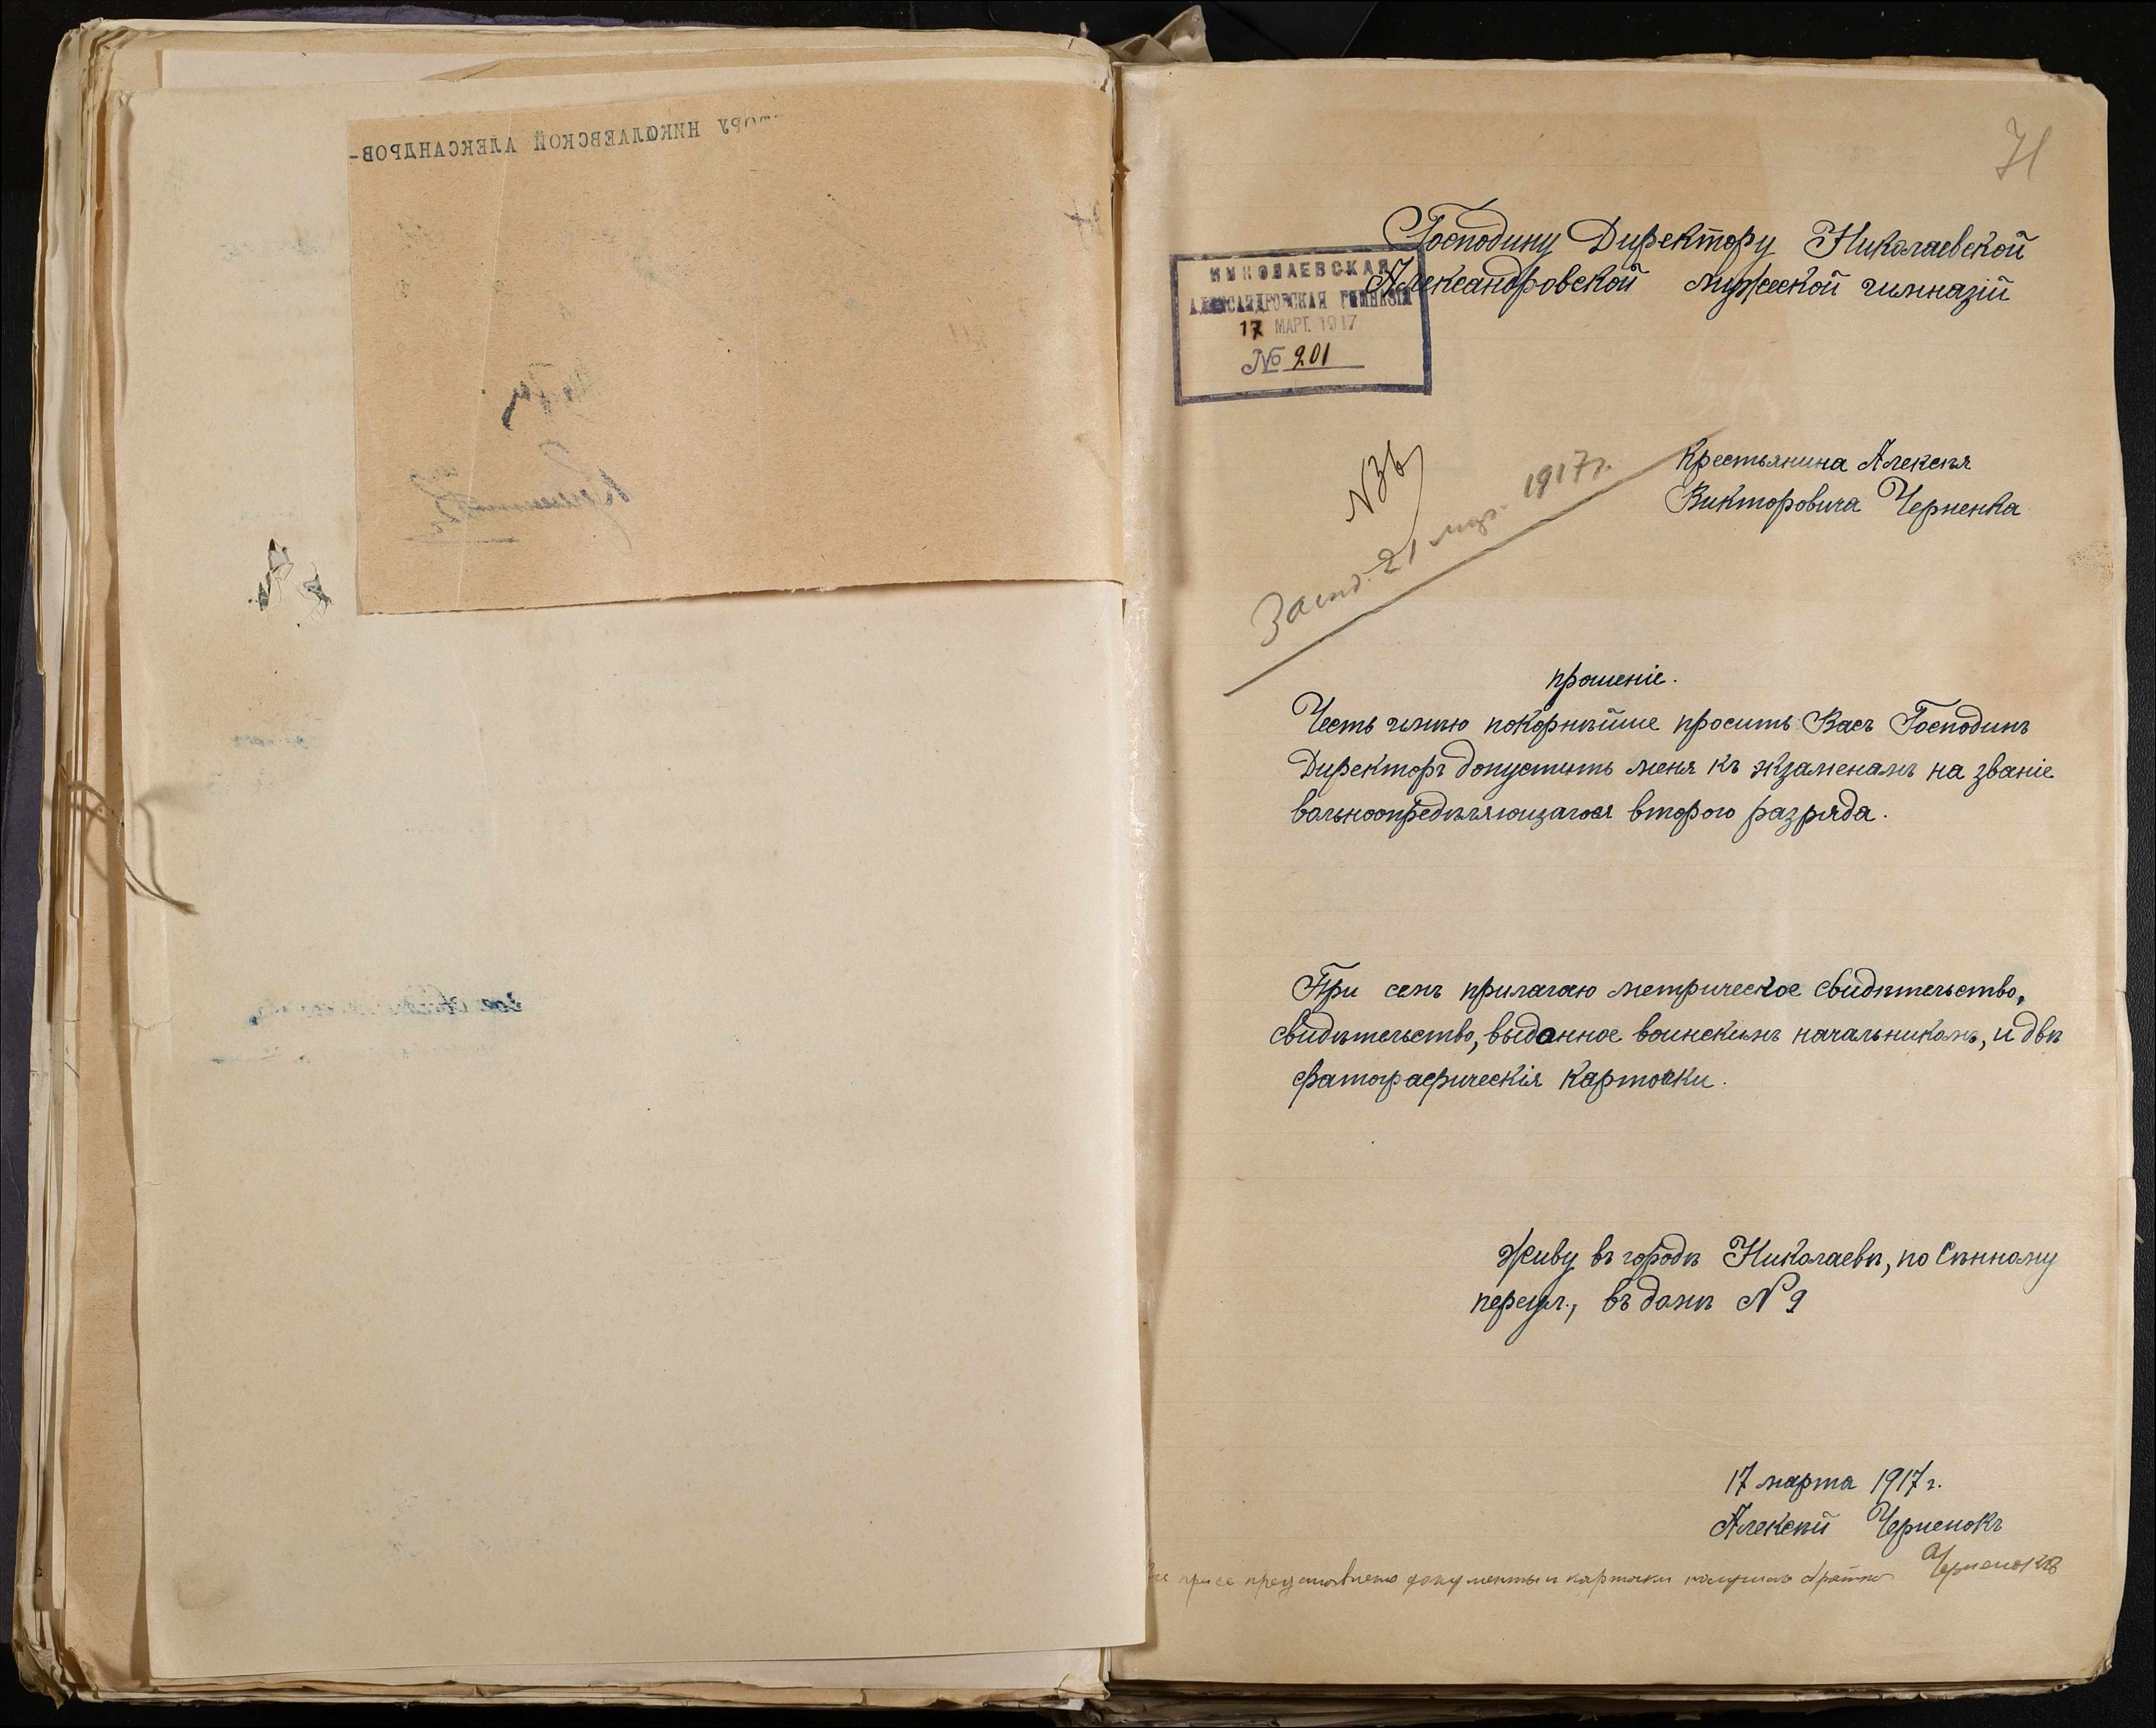 ТОРУ НИКОЛАЕВСКОЙ АЛЕКСАНДРОВ-
71
Господину Директору Николаевской
Александровской мужской гимназіи
НИКОЛАЕВСКАЯ
АЛЕКСАНДРОВСКАЯ ГИМНАЗІЯ
17 МАРТ. 1917
№ 201
Крестьянина Алексѣя
Викторовича Черненка
N36
21 мар. 1917г.
прошеніе.
Честь имѣю покорнѣйше просить Васъ Господинъ
Директоръ допустить меня къ экзаменамъ на званіе
вольноопредѣляющагося второго разряда.
При семъ прилагаю метрическое свидѣтельство,
свидѣтельство, выданное воинскимъ начальникомъ, и двѣ
фатографическія карточки.
Живу въ городѣ Николаевѣ, по Сѣнному
переул., въ домѣ № 9
17 марта 1917 г.
Алексѣй Черненокъ
документы и карточки получилъ обратно Черненокъ